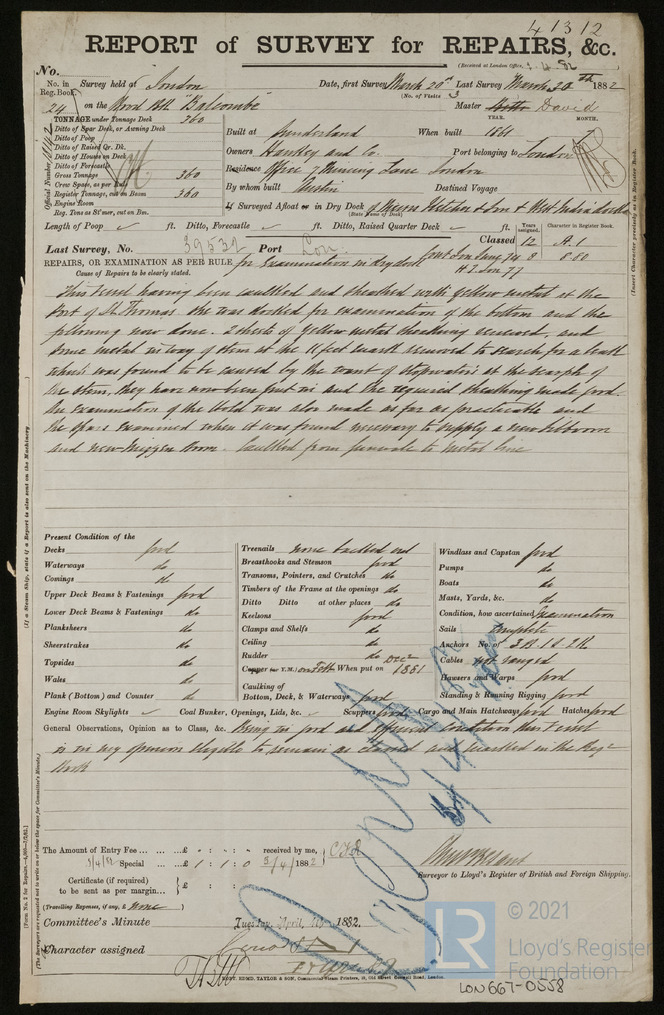 41312
REPORT of SURVEY for REPAIRS, &c.
(Received at London Office, 1.4.82
No.
No. in Reg. Book. Survey held at London Date, first Survey March 20th Last Survey March 30th 1882
(No. of Visits 3
24 on the Wood Bk "Balcombe" Master David
TONNAGE under Tonnage Deck 360
YEAR. MONTH.
Ditto of Spar Deck, or Awning Deck
Ditto of Poop
Built at Sunderland When built 1861
Ditto of Raised Qr. Dk.
Ditto of Houses on Deck
Owners Hankey and Co. Port belonging to London
Ditto of Forecastle
Gross Tonnage 360
Residence Office 7 Mincing Lane London
Crew Space, as per
Register Tonnage, cut on Beam 360
By whom built Austin Destined Voyage
Engine Room
Reg. Tons as St'mer, cut on Bm.
If Surveyed Afloat or in Dry Dock of Messrs Fletcher & Son & West India docks
(State Name of Dock)
Length of Poop ft. Ditto, Forecastle ft. Ditto, Raised Quarter Deck ft.
Years assigned. Character in Register Book.
Last Survey, No. 39532 Port Lon. Classed 12 A.1
REPAIRS, OR EXAMINATION AS PER RULE for Examination in dry dock Lon 74 8 8.80
Cause of Repairs to be clearly stated. Lon 77
This Vessel having been caulked and sheathed with yellow metal at the
Port of St. Thomas she was docked for examination of the bottom and the
following now done. 2 sheets of yellow metal sheathing renewed, and
some metal in way of stem at the 11 feet mark removed to search for a leak
which was found to be caused by the want of stopwaters at the scarph of
the stem, they have now been put in and the required sheathing made good.
An examination of the Hold was also made as far as practicable and
the spars examined when it was found necessary to supply a new jibboom
and new mizzen boom. Caulked from gunwale to metal line
Present Condition of the
Decks good
Waterways do
Comings do
Upper Deck Beams & Fastenings good
Lower Deck Beams & Fastenings do
Planksheers do
Sheerstrakes do
Topsides do
Wales do
Plank (Bottom) and Counter do
Engine Room Skylights
Treenails none backed out
Breasthooks and Stemson good
Transoms, Pointers, and Crutches do
Timbers of the Frame at the openings do
Ditto Ditto at other places do
Keelsons good
Clamps and Shelfs do
Ceiling do
Rudder do
Copper (or Y.M.) on Felt When put on Decr 1881
Caulking of
Bottom, Deck, & Waterways good
Coal Bunker, Openings, Lids, &c. Scuppers good
Windlass and Capstan good
Pumps do
Boats do
Masts, Yards, &c. do
Condition, how ascertained Examination
Sails Complete
Anchors No. of 3 B. 1 S. 2 K.
Cables not ranged
Hawsers and Warps good
Standing & Running Rigging good
Cargo and Main Hatchways good Hatches good
General Observations, Opinion as to Class, &c. Being in good and efficient condition this Vessel
is in my opinion eligible to remain as classed and marked in the Regr
Book
The Amount of Entry Fee £ : : received by me,
1/4/82 Special £ 1 : 1 : 0 3/4/1882
Certificate (if required) to be sent as per margin £ :
Surveyor to Lloyd's Register of British and Foreign Shipping.
(Travelling Expenses, if any, £ none)
Committee's Minute Tuesday, April 4th 1882.
Character assigned
EDMD. TAYLOR & SON, Commercial Steam Printers, London.
Official Number
(Insert Character precisely as in Register Book.
(If a Steam Ship, state if a Report is also sent on the Machinery.
[Form No. 2 for Repairs
(The Surveyors are requested not to write on or below the space for Committee's Minute.)
LR
© 2021
Lloyd's Register
Foundation
LON667-0558